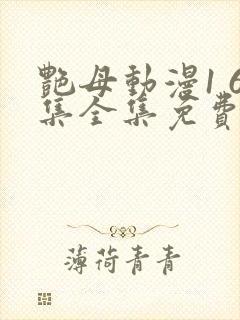 艷母動漫1 6
集全集免費
薄荷青青